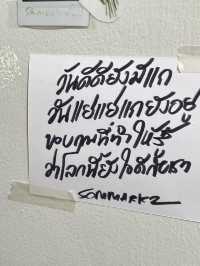 วันดีดียังมีแก
วันแย่แย่แกยังอยู่
ขอบคุณที่ทำให้รู้
ว่าโลกนี้ยังใจดีกับเรา